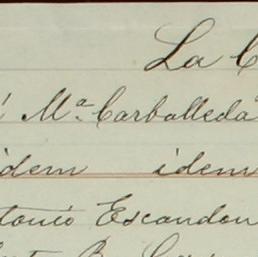 La C
Mª Carballeda
idem idem
tonio Escandon